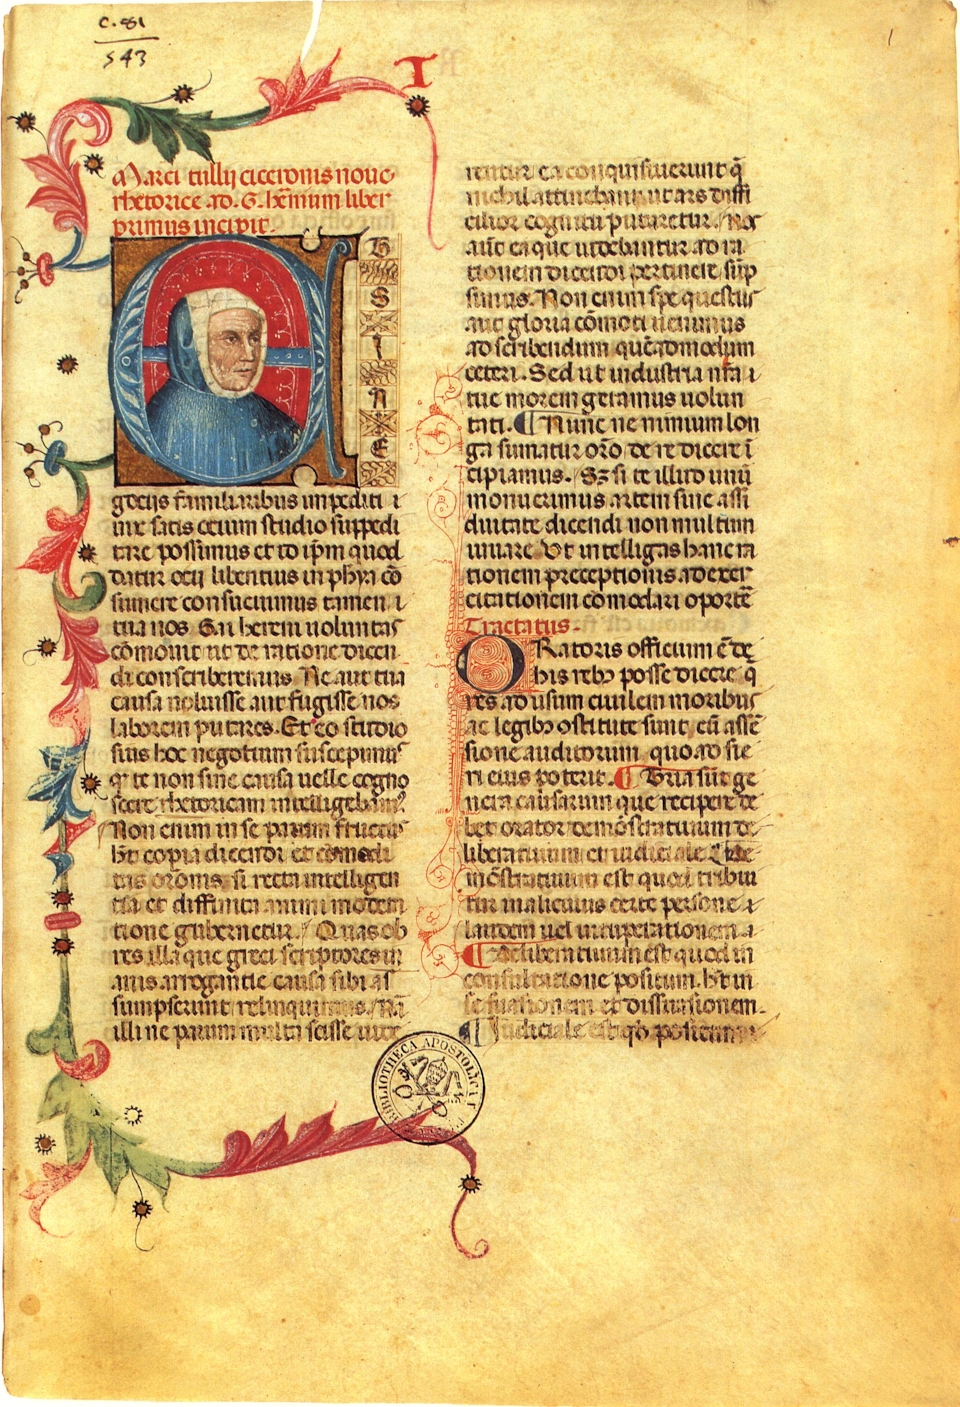 C. 81
543
1
T
Marci tullij ciceronis noue
rhetorice ad. G. herenium liber
primus incipit.
E
TSI
NE
gociis familiaribus impediti i
uix satis ocium studio suppedi
tare possumus et id ipm quod
datur ocij libentius in phya co
sumere consueuimus tamen i
tua nos Gai hereni uoluntas
cōmouit ut de ratione dicen
di conscriberemus. Ne aut tua
causa noluisse aut fugisse nos
laborem putares. Et eo studio
suis hoc negotium suscepimus
q te non sine causa uelle cogno
scere rhetoricam intelligebam
Non enim in se parum fructus
ht copia dicendi et comodi
tas orōnis, si recta intelligen
tia et diffinita animi modera
tione gubernetur. Quas ob
res illa que greci scriptores in
anis arrogantie causa sibi as
sumpserunt relinquimus. Nā
illi ne parum multa scisse uide
rentur ea conquisiuerunt q̄
nichil attinebant, ut ars diffi
cilior cognitu putaretur. Nos
aut ea que uidebantur ad ra
tionem dicendi pertinere, sūp
simus. Non enim spe questus
aut gloria cōmoti uenimus
ad scribendum quēadmodum
ceteri. Sed ut industria nra
tue morem geramus uolun
tati. ¶ Nunc ne nimium lon
ga sumatur orō de re dicere i
cipiamus. Sz si te illud unū
monuerimus artem sine assi
duitate dicendi non multum
iuuare. Vt intelligas hanc ra
tionem preceptionis ad exer
citationem comodari oporte
Tractatus.
ORatoris officium ē de
his rebz posse dicere q
res ad usum ciuilem moribus
ac legibz ostitute sunt, cū assē
sione auditorum, quoad fie
ri eius poterit. ¶ Tria sūt ge
nera causarum que recipere de
bet orator demōstratiuum de
liberatiuum et iudiciale De
mōstratiuum est quod tribui
tur in alicuius certe persone
laudem uel uituperationem
¶ Deliberatiuum est quod in
consultatione positum. ht in
se suasionem et dissuasionem.
¶ Iudiciale est qd positum
BIBLIOTHECA APOSTOLICA